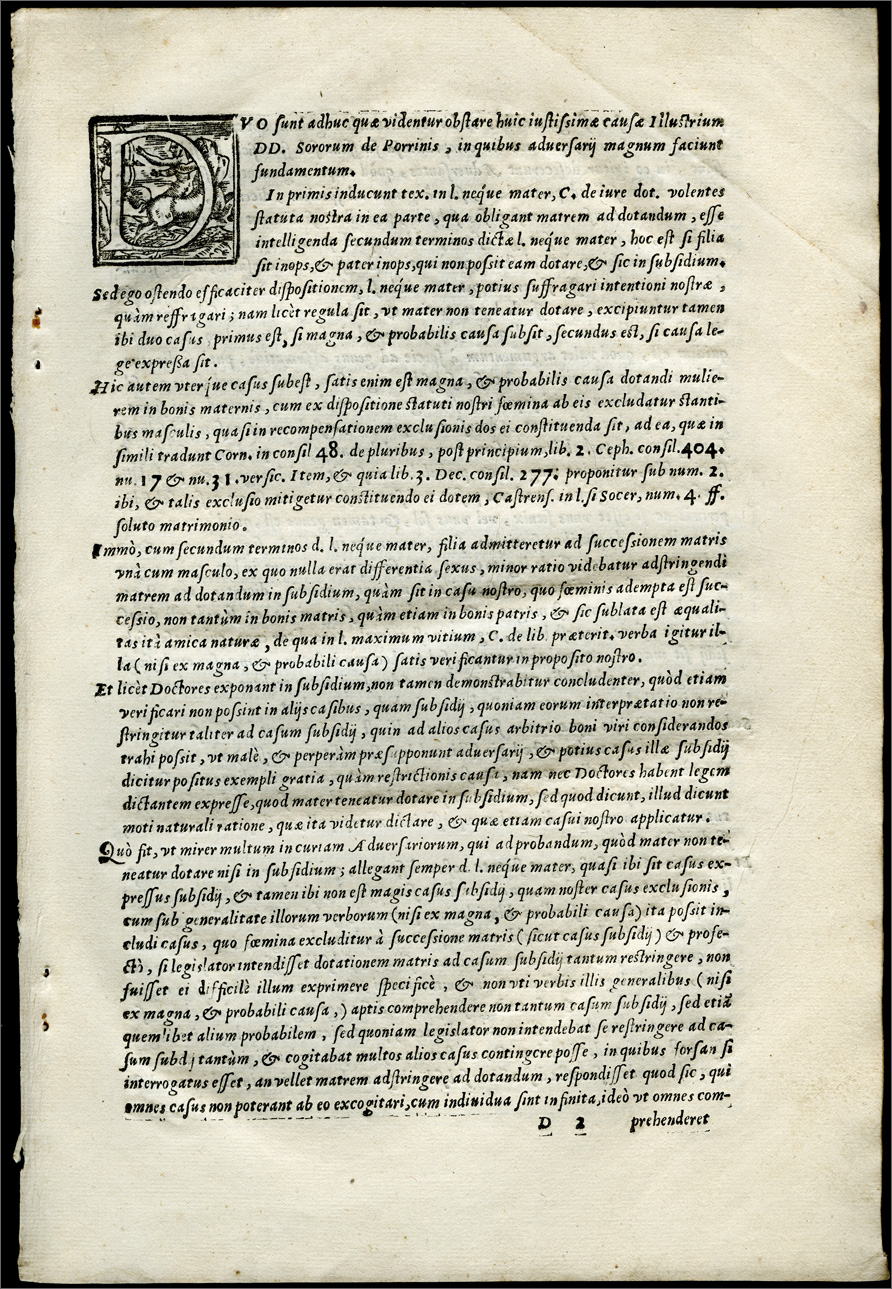 DVO sunt adhuc quæ videntur obstare huic iustissimæ causæ Illustrium
DD. Sororum de Porrinis, in quibus adversarij magnum faciunt
fundamentum.
In primis inducunt tex. in l. neque mater, C. de iure dot. volentes
statuta nostra in ea parte, qua obligant matrem ad dotandum, esse
intelligenda secundum terminos dictæ l. neque mater, hoc est si filia
sit inops, & pater inops, qui non possit eam dotare, & sic in subsidium.
Sed ego ostendo efficaciter dispositionem, l. neque mater, potius suffragari intentioni nostræ,
quàm reffrigari; nam licèt regula sit, vt mater non teneatur dotare, excipiuntur tamen
ibi duo casus primus est, si magna, & probabilis causa subsit, secundus est, si causa le-
ge expressa sit.
Hic autem vterque casus subest, satis enim est magna, & probabilis causa dotandi mulie-
rem in bonis maternis, cum ex dispositione statuti nostri fœmina ab eis excludatur stanti-
bus masculis, quasi in recompensationem exclusionis dos ei constituenda sit, ad ea, quæ in
simili tradunt Corn. in consil 48. de pluribus, post principium, lib. 2. Ceph. consil. 404.
nu. 17 & nu. 31. versic. Item, & quia lib. 3. Dec. consil. 277: proponitur sub num. 2.
ibi, & talis exclusio mitigetur constituendo ei dotem, Castrens. in l. si Socer, num. 4. ff.
soluto matrimonio.
Immò, cum secundum terminos d. l. neque mater, filia admitteretur ad successionem matris
vnà cum masculo, ex quo nulla erat differentia sexus, minor ratio videbatur adstringendi
matrem ad dotandum in subsidium, quàm sit in casu nostro, quo fœminis adempta est suc-
cessio, non tantùm in bonis matris, quàm etiam in bonis patris, & sic sublata est æquali-
tas ità amica naturæ, de qua in l. maximum vitium, C. de lib. præterit. verba igitur il-
la (nisi ex magna, & probabili causa) satis verificantur in proposito nostro.
Et licèt Doctores exponant in subsidium, non tamen demonstrabitur concludenter, quòd etiam
verificari non possint in alijs casibus, quam subsidij, quoniam eorum interprætatio non re-
stringitur taliter ad casum subsidij, quin ad alios casus arbitrio boni viri considerandos
trahi possit, vt malè, & perperàm præsupponunt adversarij, & potius casus illæ subsidij
dicitur positus exempli gratia, quàm restrictionis causa, nam nec Doctores habent legem
dictantem expresse, quod mater teneatur dotare in subsidium, sed quod dicunt, illud dicunt
moti naturali ratione, quæ ita videtur dictare, & quæ etiam casui nostro applicatur.
Quò fit, vt mirer multum in curiam Adversariorum, qui ad probandum, quòd mater non te-
neatur dotare nisi in subsidium; allegant semper d. l. neque mater, quasi ibi sit casus ex-
pressus subsidij, & tamen ibi non est magis casus subsidij, quam noster casus exclusionis,
cum sub generalitate illorum verborum (nisi ex magna, & probabili causa) ita possit in-
cludi casus, quo fœmina excluditur à successione matris (sicut casus subsidij) & profe-
ctò, si legislator intendisset dotationem matris ad casum subsidij tantum restringere, non
fuisset ei difficilè illum exprimere specificè, & non vti verbis illis generalibus (nisi
ex magna, & probabili causa,) aptis comprehendere non tantum casum subsidij, sed etiã
quemlibet alium probabilem, sed quoniam legislator non intendebat se restringere ad ca-
sum subdj tantùm, & cogitabat multos alios casus contingere posse, in quibus forsan si
interrogatus esset, an vellet matrem adstringere ad dotandum, respondisset quod sic, qui
omnes casus non poterant ab eo excogitari, cum indiuidua sint infinita, ideò vt omnes com-
D 2 prehenderet